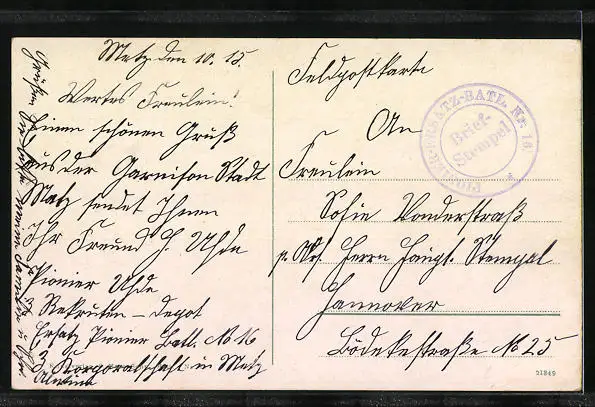 Metz den 10. 15.
Wertes Fräulein!
Einen schönen Gruß
aus der Garnison Stadt
Metz sendet Ihnen
Ihr Freund H. Uhde
Pionier Uhde
Rekruten-Depot
Ersatz Pionier Batl. No 16
3. Korporalschaft in Metz
Feldpostkarte
An
Fräulein
Sofie Vonderstraß
Herrn Haupt. Stempal
Hannover
Bödekestraße No 25
PIONIER-ERSATZ-BATL. Nr. 16.
Brief-
Stempel
21849